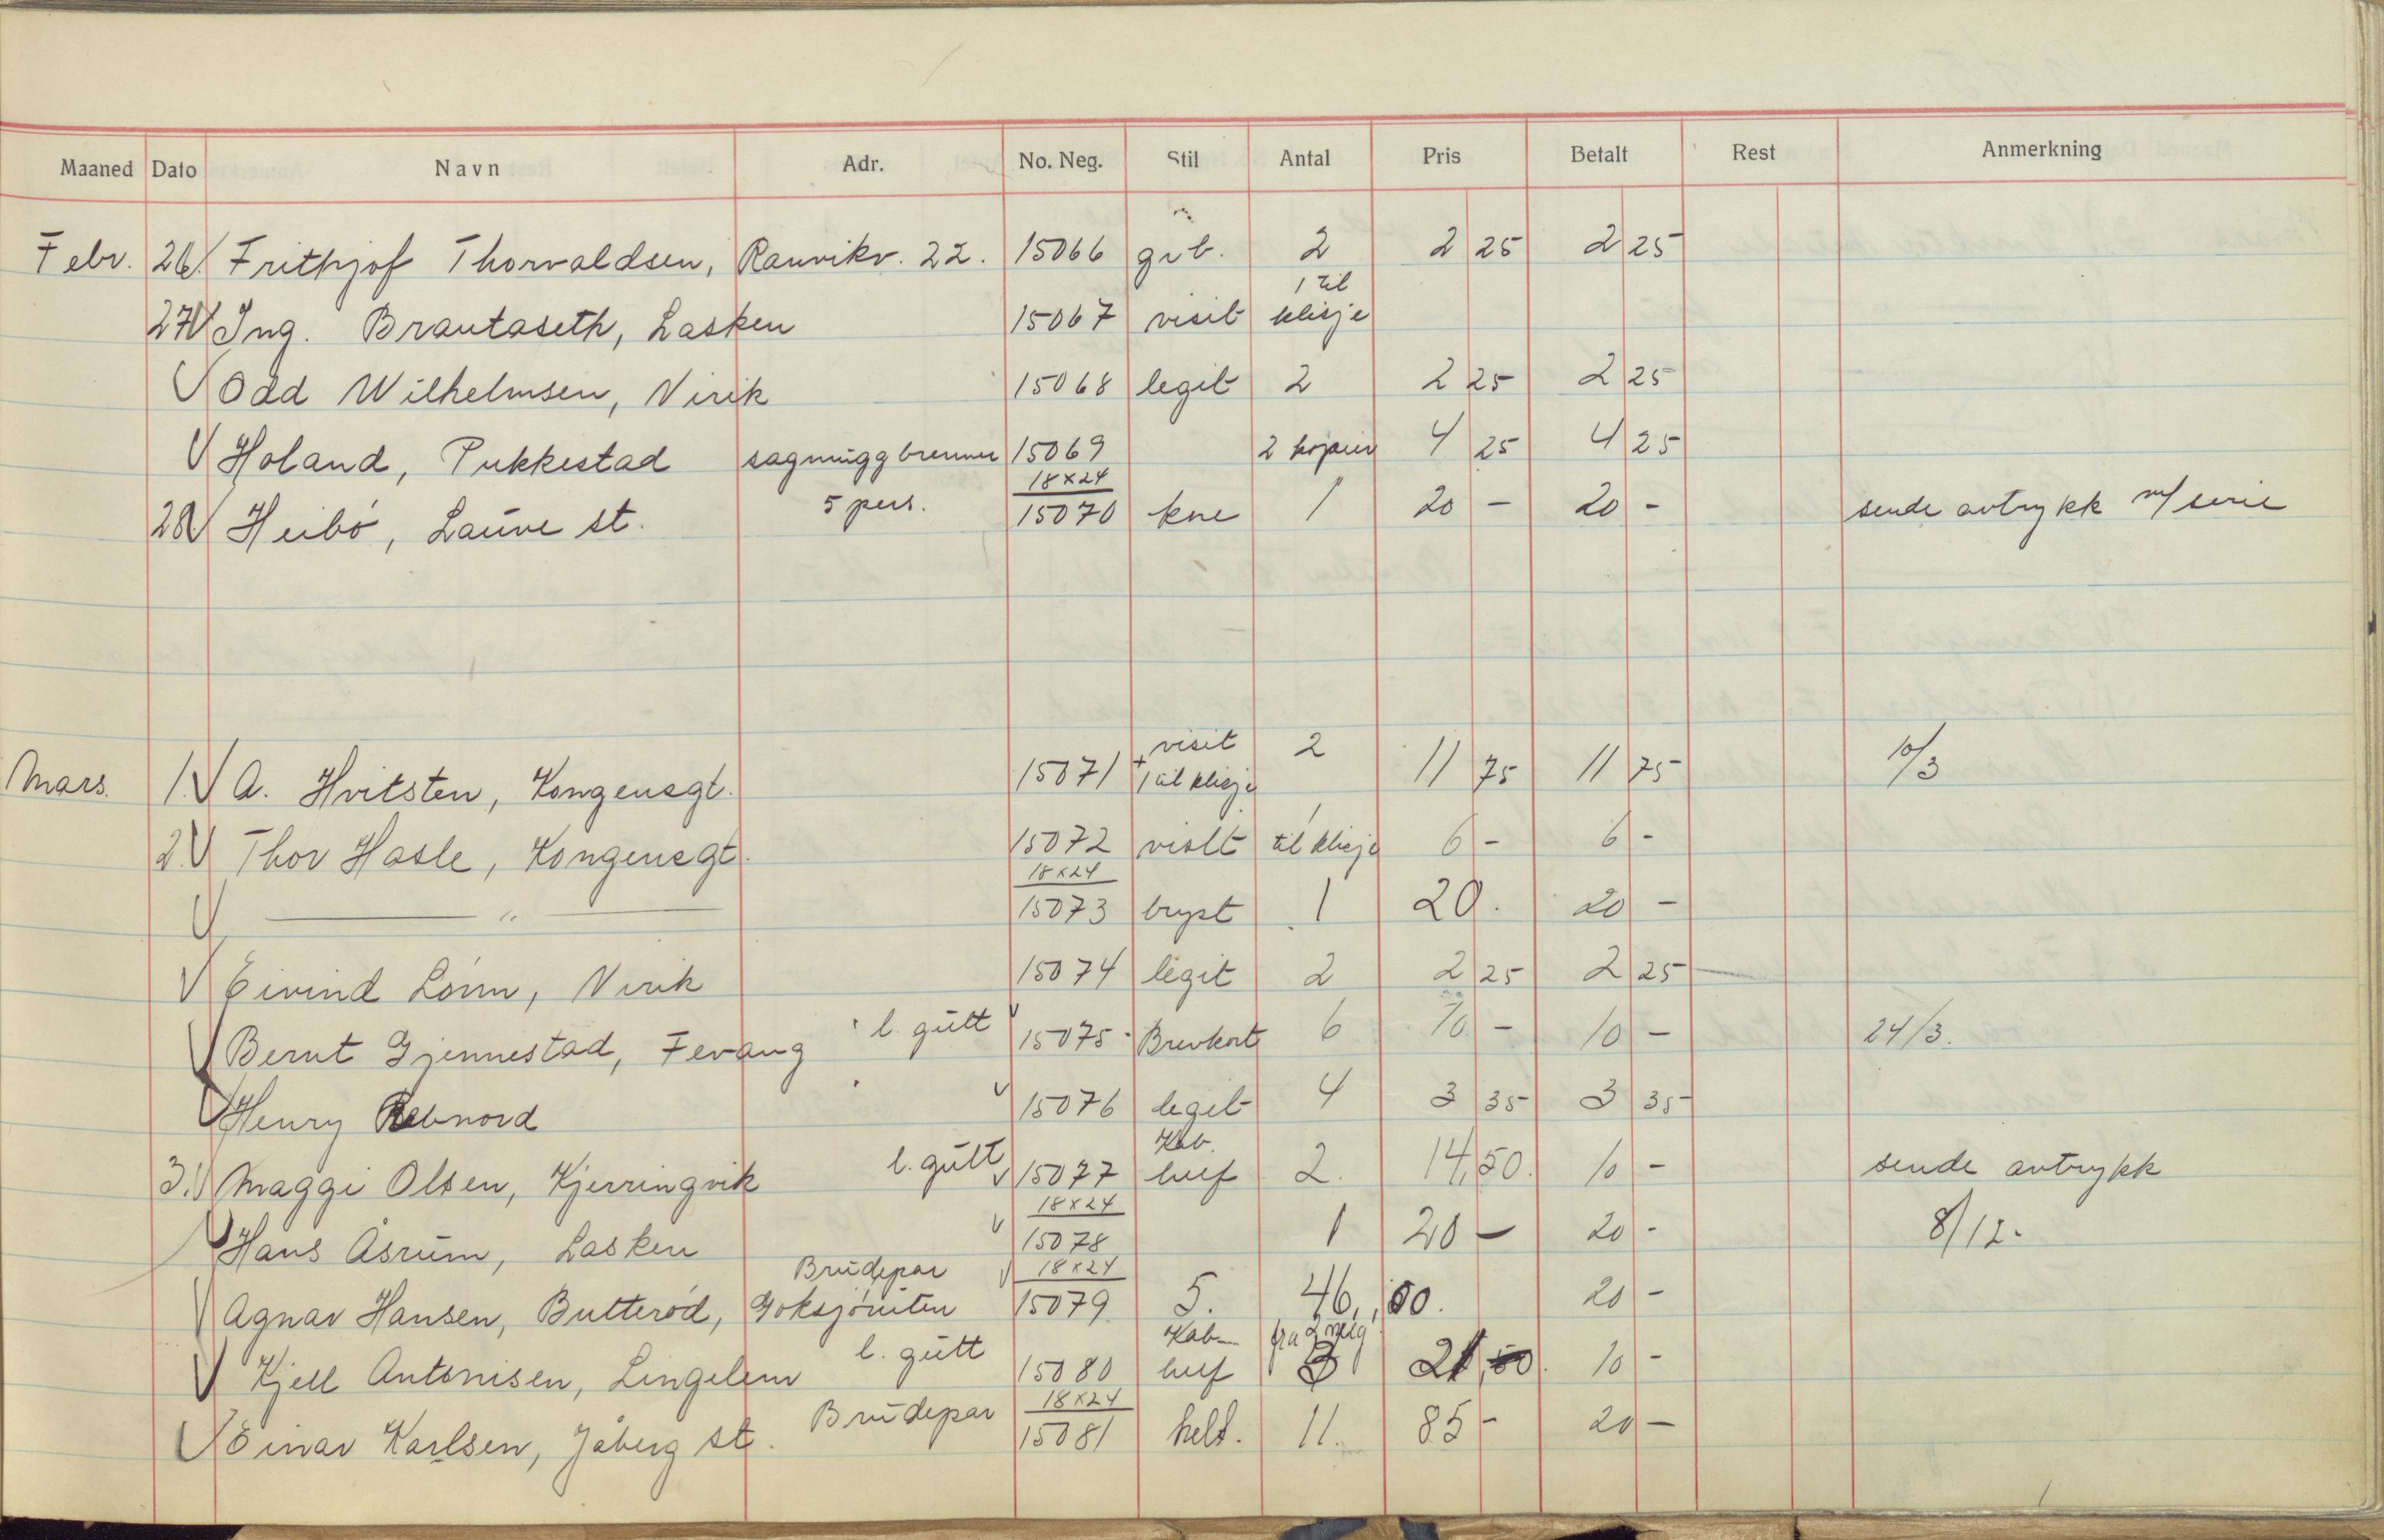 Maaned Dato Navn Adr. No. Neg. Stil Antal Pris Betalt Rest Anmerkning
Febr. 26. Frithjof Thorvaldsen, Ranvikv. 22. 15066 grb. 2 2 25 2 25
27 Ing. Brautaseth, Lasken 15067 visit 1 til klisje
Odd Wilhelmsen, Virik 15068 legit 2 2 25 2 25
Holand, Pukkestad sagmugg brenner 15069 2 kopier 4 25 4 25
28 Heibø, Lauve st. 5 pers. 18x24 15070 kne 1 20 - 20 - sende avtrykk m/ serie
Mars. 1. A. Hvitsten, Kongensgt. 15071 visit + 1 til klisje 2 11 75 11 75 10/3
2. Thor Hasle, Kongensgt. 15072 visit 1 til klisje 6 - 6 -
" 18x24 15073 bryst 1 20. 20 -
Eivind Lönn, Virik 15074 legit 2 2 25 2 25
Bernt Gjennestad, Fevang l. gutt 15075 - Brevkort 6 10 - 10 - 24/3.
Henry 15076 legit 4 3 35 3 35
3. Maggi Olsen, Kjerringvik l. gutt 15077 Kab. huf 2. 14,50. 10 - sende avtrykk
Hans Åsrum, Lasken 18x24 15078 1 20 - 20 - 8/12.
Agnar Hansen, Butterød, Goksjöruten Brudepar 18x24 15079 5. 46,00. 20 -
Kjell Antonisen, Lingelem l. gutt 15080 Kab- huf fra 2 neg 3 21, 50. 10 -
Einar Karlsen, Jåberg st. Brudepar 18x24 15081 helf. 11. 85 - 20 -